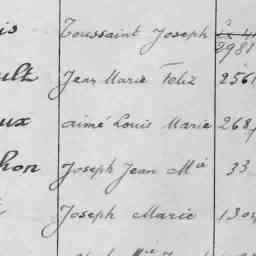 is Toussaint Joseph
2981
ult Jean Marie Feliz 256
ux aimé Louis Marie 268
hon Joseph Jean Mie 33
Joseph Marie 130